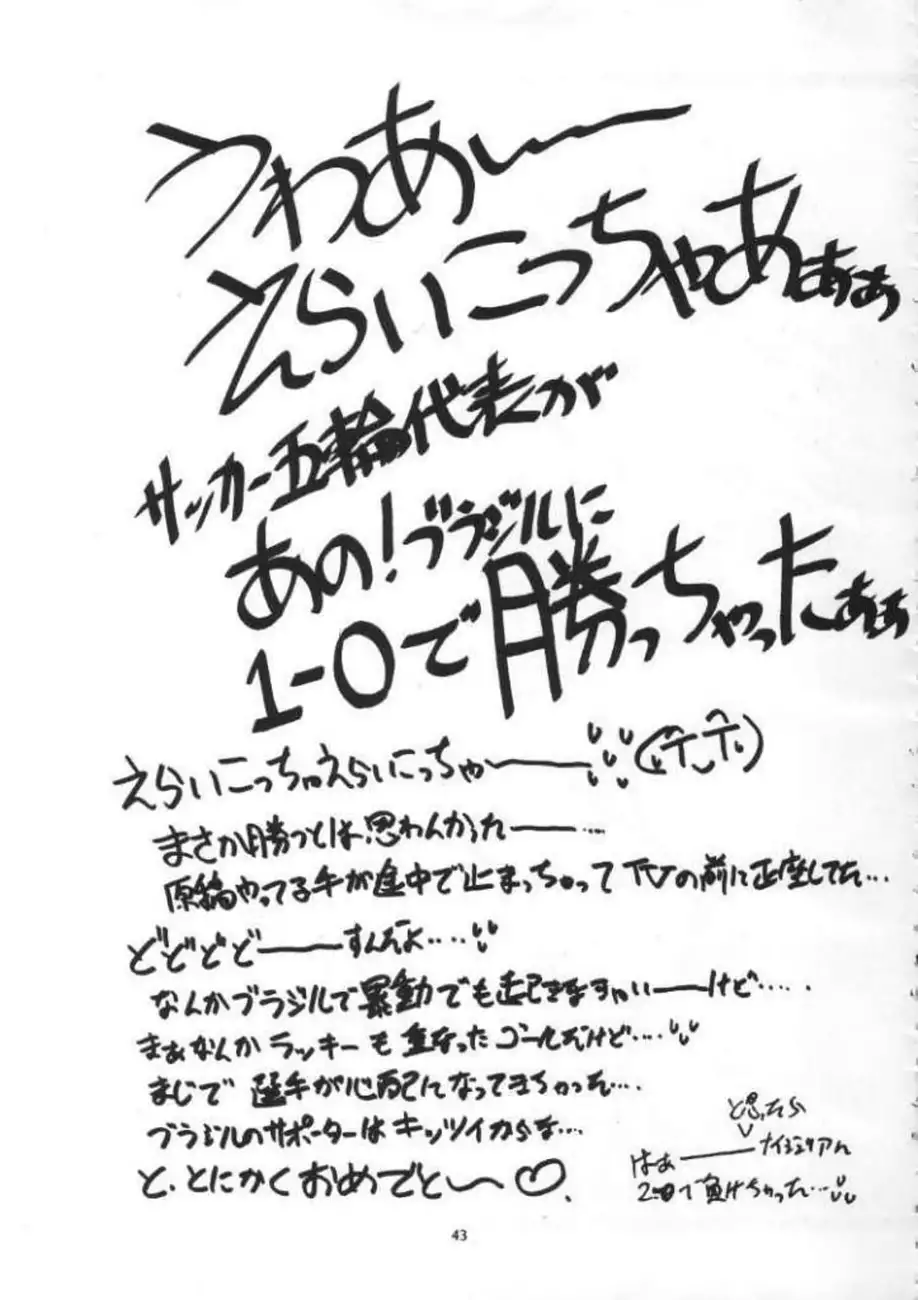 うわあ〜ー
えらいこっちゃあぁぁ
サッカー五輪代表が
あの！ブラジルに
1-0で勝っちゃったぁぁ
えらいこっちゃえらいこっちゃ〜ー
まさか勝つとは思わんかったー…
原稿やってる手が途中で止まっちゃってTVの前に正座してた…
どどどどーーすんだよ‥‥
なんかブラジルで暴動でも起きますかいーけど……
まぁなんかラッキーも重なったゴールだけど‥‥
まじで選手が心配になってきちゃった…
ブラジルのサポーターはキッツイからな…
と、とにかくおめでと〜♡
と思ったら
はぁーーナイジェリアに
2-0で負けちゃった…
43